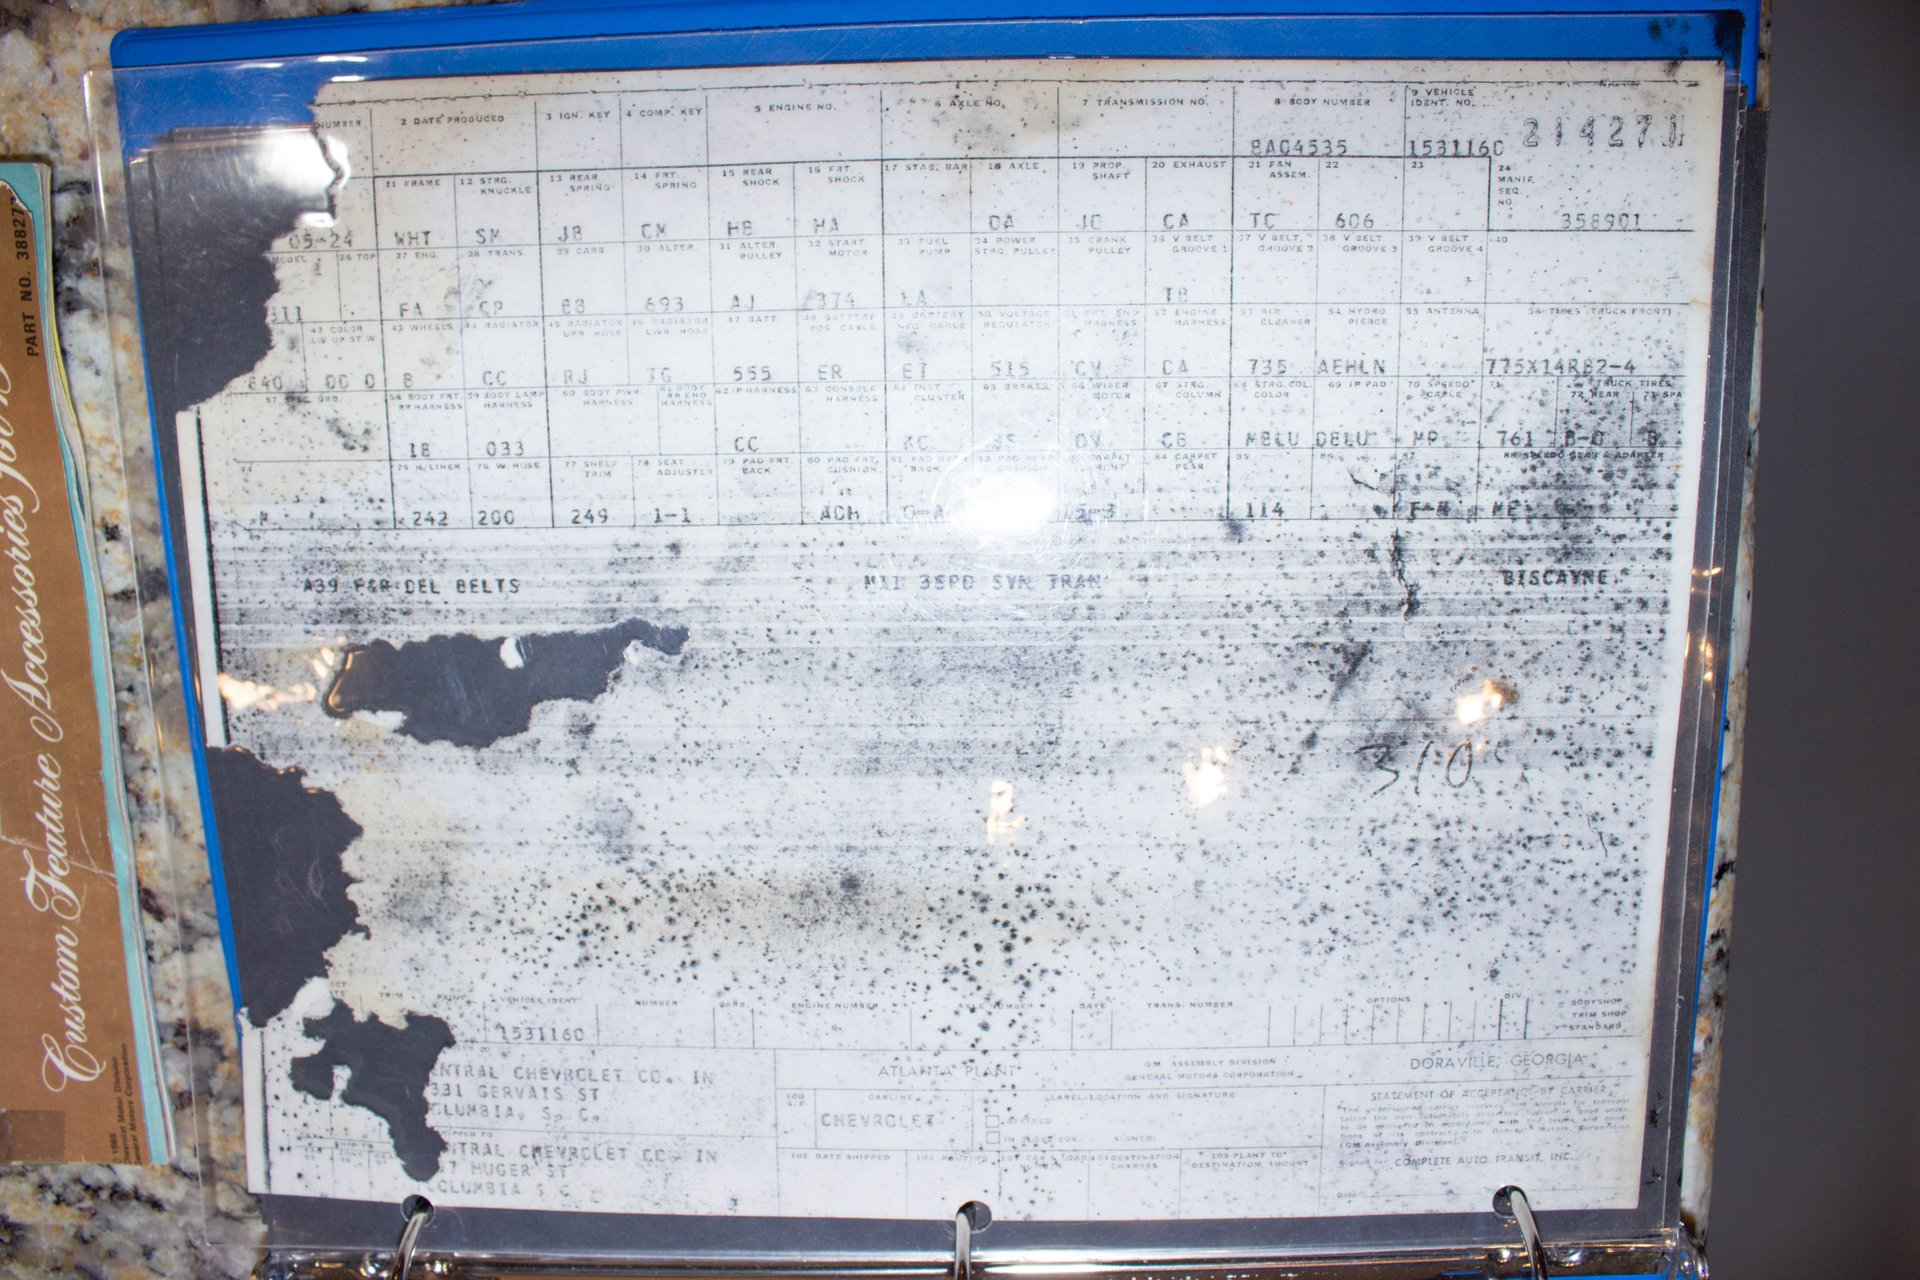 NUMBER 2 DATE PRODUCED 3 IGN. KEY 4 COMP. KEY 5 ENGINE NO. 6 AXLE NO. 7 TRANSMISSION NO. 8 BODY NUMBER 9 VEHICLE IDENT. NO.
BAG4535 153116C 214271
11 FRAME 12 STRG. KNUCKLE 13 REAR SPRING 14 FRT. SPRING 15 REAR SHOCK 16 FRT. SHOCK 17 STAB. BAR 18 AXLE 19 PROP. SHAFT 20 EXHAUST 21 FAN ASSEM. 22 23 24 MANIF. SEQ. NO.
05-24 WHT SM JB CM HB HA DA JC CA TC 606 358901
MODEL 26 TOP 27 ENG. 28 TRANS. 29 CARB. 30 ALTER. 31 ALTER. PULLEY 32 START. MOTOR 33 FUEL PUMP 34 POWER STRG. PULLEY 35 CRANK PULLEY 36 V BELT GROOVE 1 37 V BELT. GROOVE 2 38 V BELT GROOVE 3 39 V BELT GROOVE 4 40
311 FA CP BB 693 AJ 374 TB
42 COLOR LW UP ST W 43 WHEELS 44 RADIATOR 45 RADIATOR UPR. HOSE 46 RADIATOR LWR. HOSE 47 BATT. 48 BATTERY POS. CABLE 49 BATTERY NEG. CABLE 50 VOLTAGE REGULATOR 51 FRT. END HARNESS 52 ENGINE HARNESS 53 AIR CLEANER 54 HYDRO PIERCE 55 ANTENNA 56 TIRES (TRUCK FRONT)
840 B CC RJ 555 ER ET 515 CV DA 735 AEHLN 775X14RB2-4
57 SPEC. ORD. 58 BODY FRT. RR HARNESS 59 BODY LAMP HARNESS 60 BODY PWR. HARNESS 61 BODY RR END HARNESS 62 IP HARNESS 63 CONSOLE HARNESS 64 INST. CLUSTER 65 BRAKES 66 WIPER MOTOR 67 STRG. COLUMN 68 STRG. COL. COLOR 69 IP PAD 70 SPEEDO CABLE 71 TRUCK TIRES 72 REAR 73 SPA
033 CC DV CB MBLU DBLU MP 761
74 75 H. LINER 76 W. HOSE 77 SHELF TRIM 78 SEAT ADJUSTER 79 PAD FRT. BACK 80 PAD FRT. CUSHION 84 CARPET REAR 85 86 87 88 SPEEDO GEAR & ADAPTER
242 200 249 1-1 114
A39 F&R DEL BELTS M11 3SPD SYN TRAN BISCAYNE
310
TRIM PAINT VEHICLE IDENT NUMBER CARB. ENGINE NUMBER AXLE NUMBER DATE TRANS. NUMBER OPTIONS DIV. BODYSHOP
TRIM SHOP
STANDARD
153116C
ENTRAL CHEVROLET CO. IN
331 GERVAIS ST
OLUMBIA, S. C.
ATLANTA PLANT GM ASSEMBLY DIVISION
GENERAL MOTORS CORPORATION
DORAVILLE, GEORGIA
CARLINE
CHEVROLET
LABEL LOCATION AND SIGNATURE
SIGNED:
STATEMENT OF ACCEPTANCE BY CARRIER
COMPLETE AUTO TRANSIT, INC.
NTRAL CHEVROLET CO. IN
HUGER ST
COLUMBIA S C
101 DATE SHIPPED 102 ROUTING 104 DESTINATION CHARGES 105 PLANT TO DESTINATION AMOUNT
PART NO. 38827
Custom Feature Accessories for
Chevrolet Motor Division
General Motors Corporation